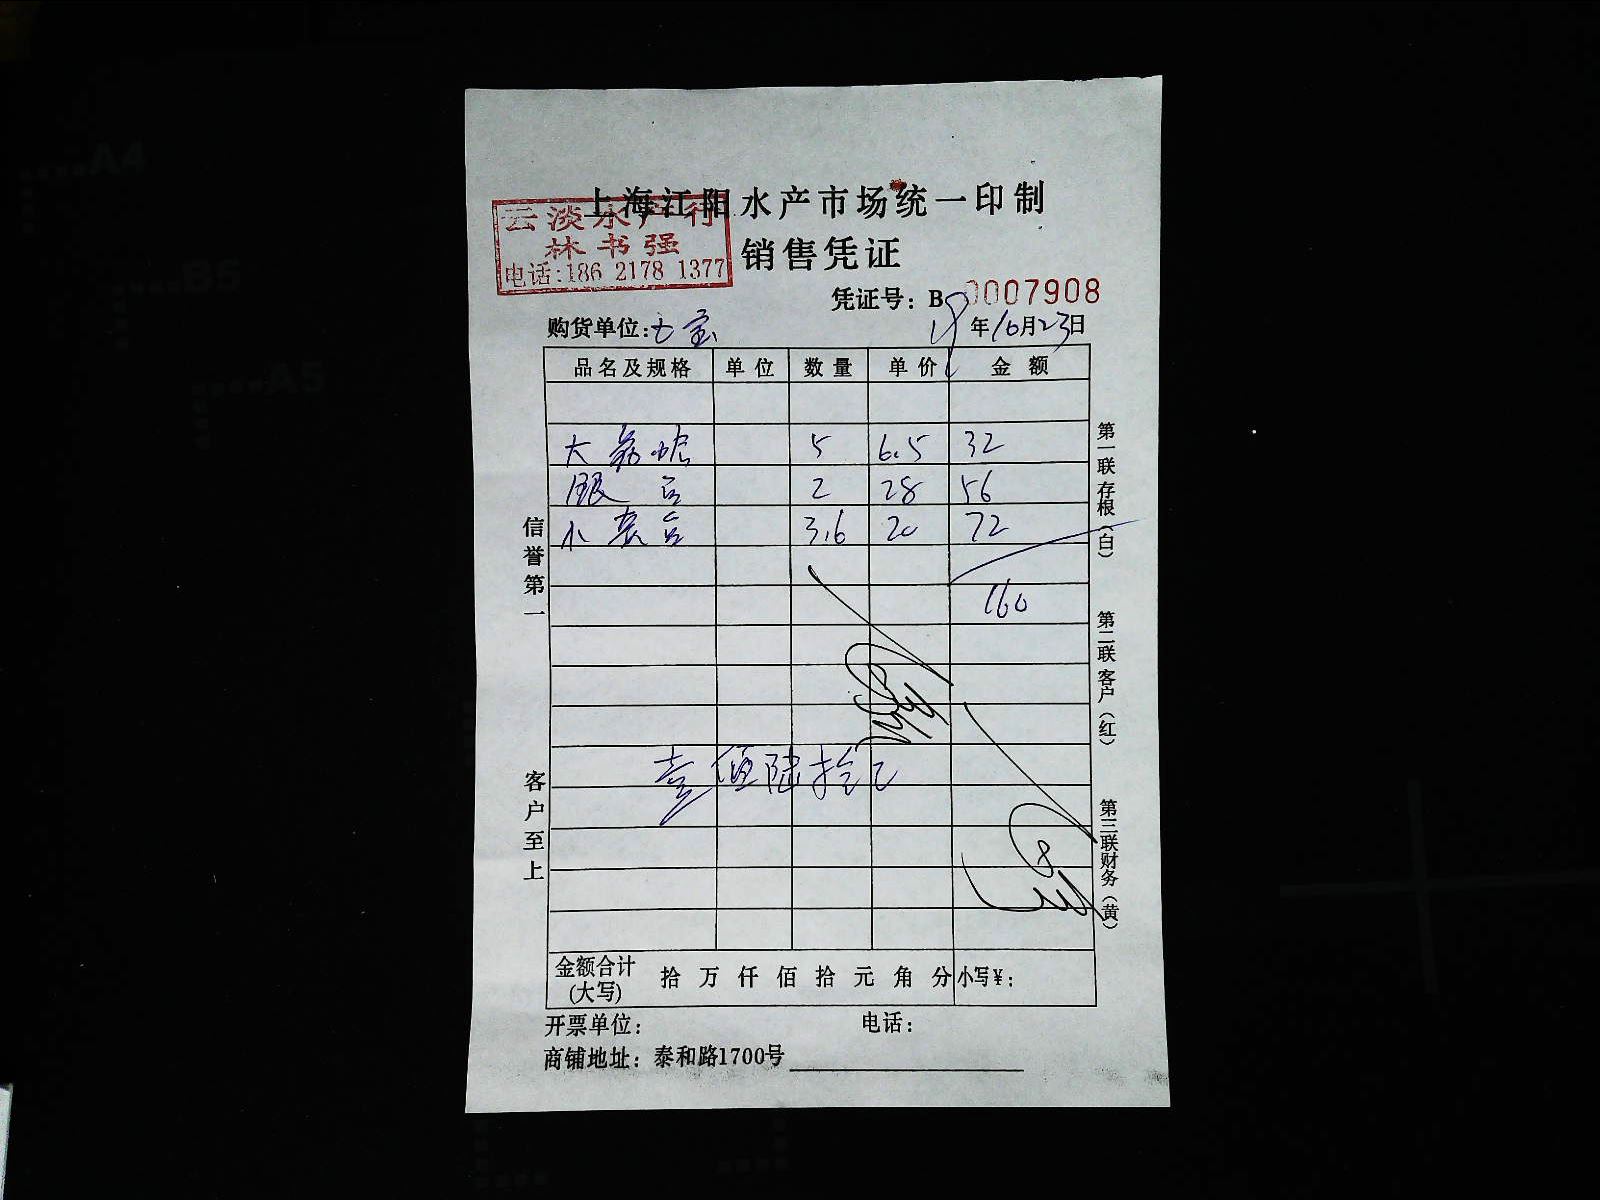 上海江阳水产市场统一印制
云淡水产行
林书强
电话:186 2178 1377
销售凭证
凭证号: B 0007908
购货单位: 七宝
18年10月23日
品名及规格 单位 数量 单价 金额
大 5 6.5 32
银 2 28 56
小 3.6 20 72
160
壹佰陆拾元
金额合计(大写) 拾 万 仟 佰 拾 元 角 分 小写¥:
开票单位: 电话:
商铺地址: 泰和路1700号
信誉第一
客户至上
第一联存根(白)
第二联客户(红)
第三联财务(黄)
A4
B5
A5